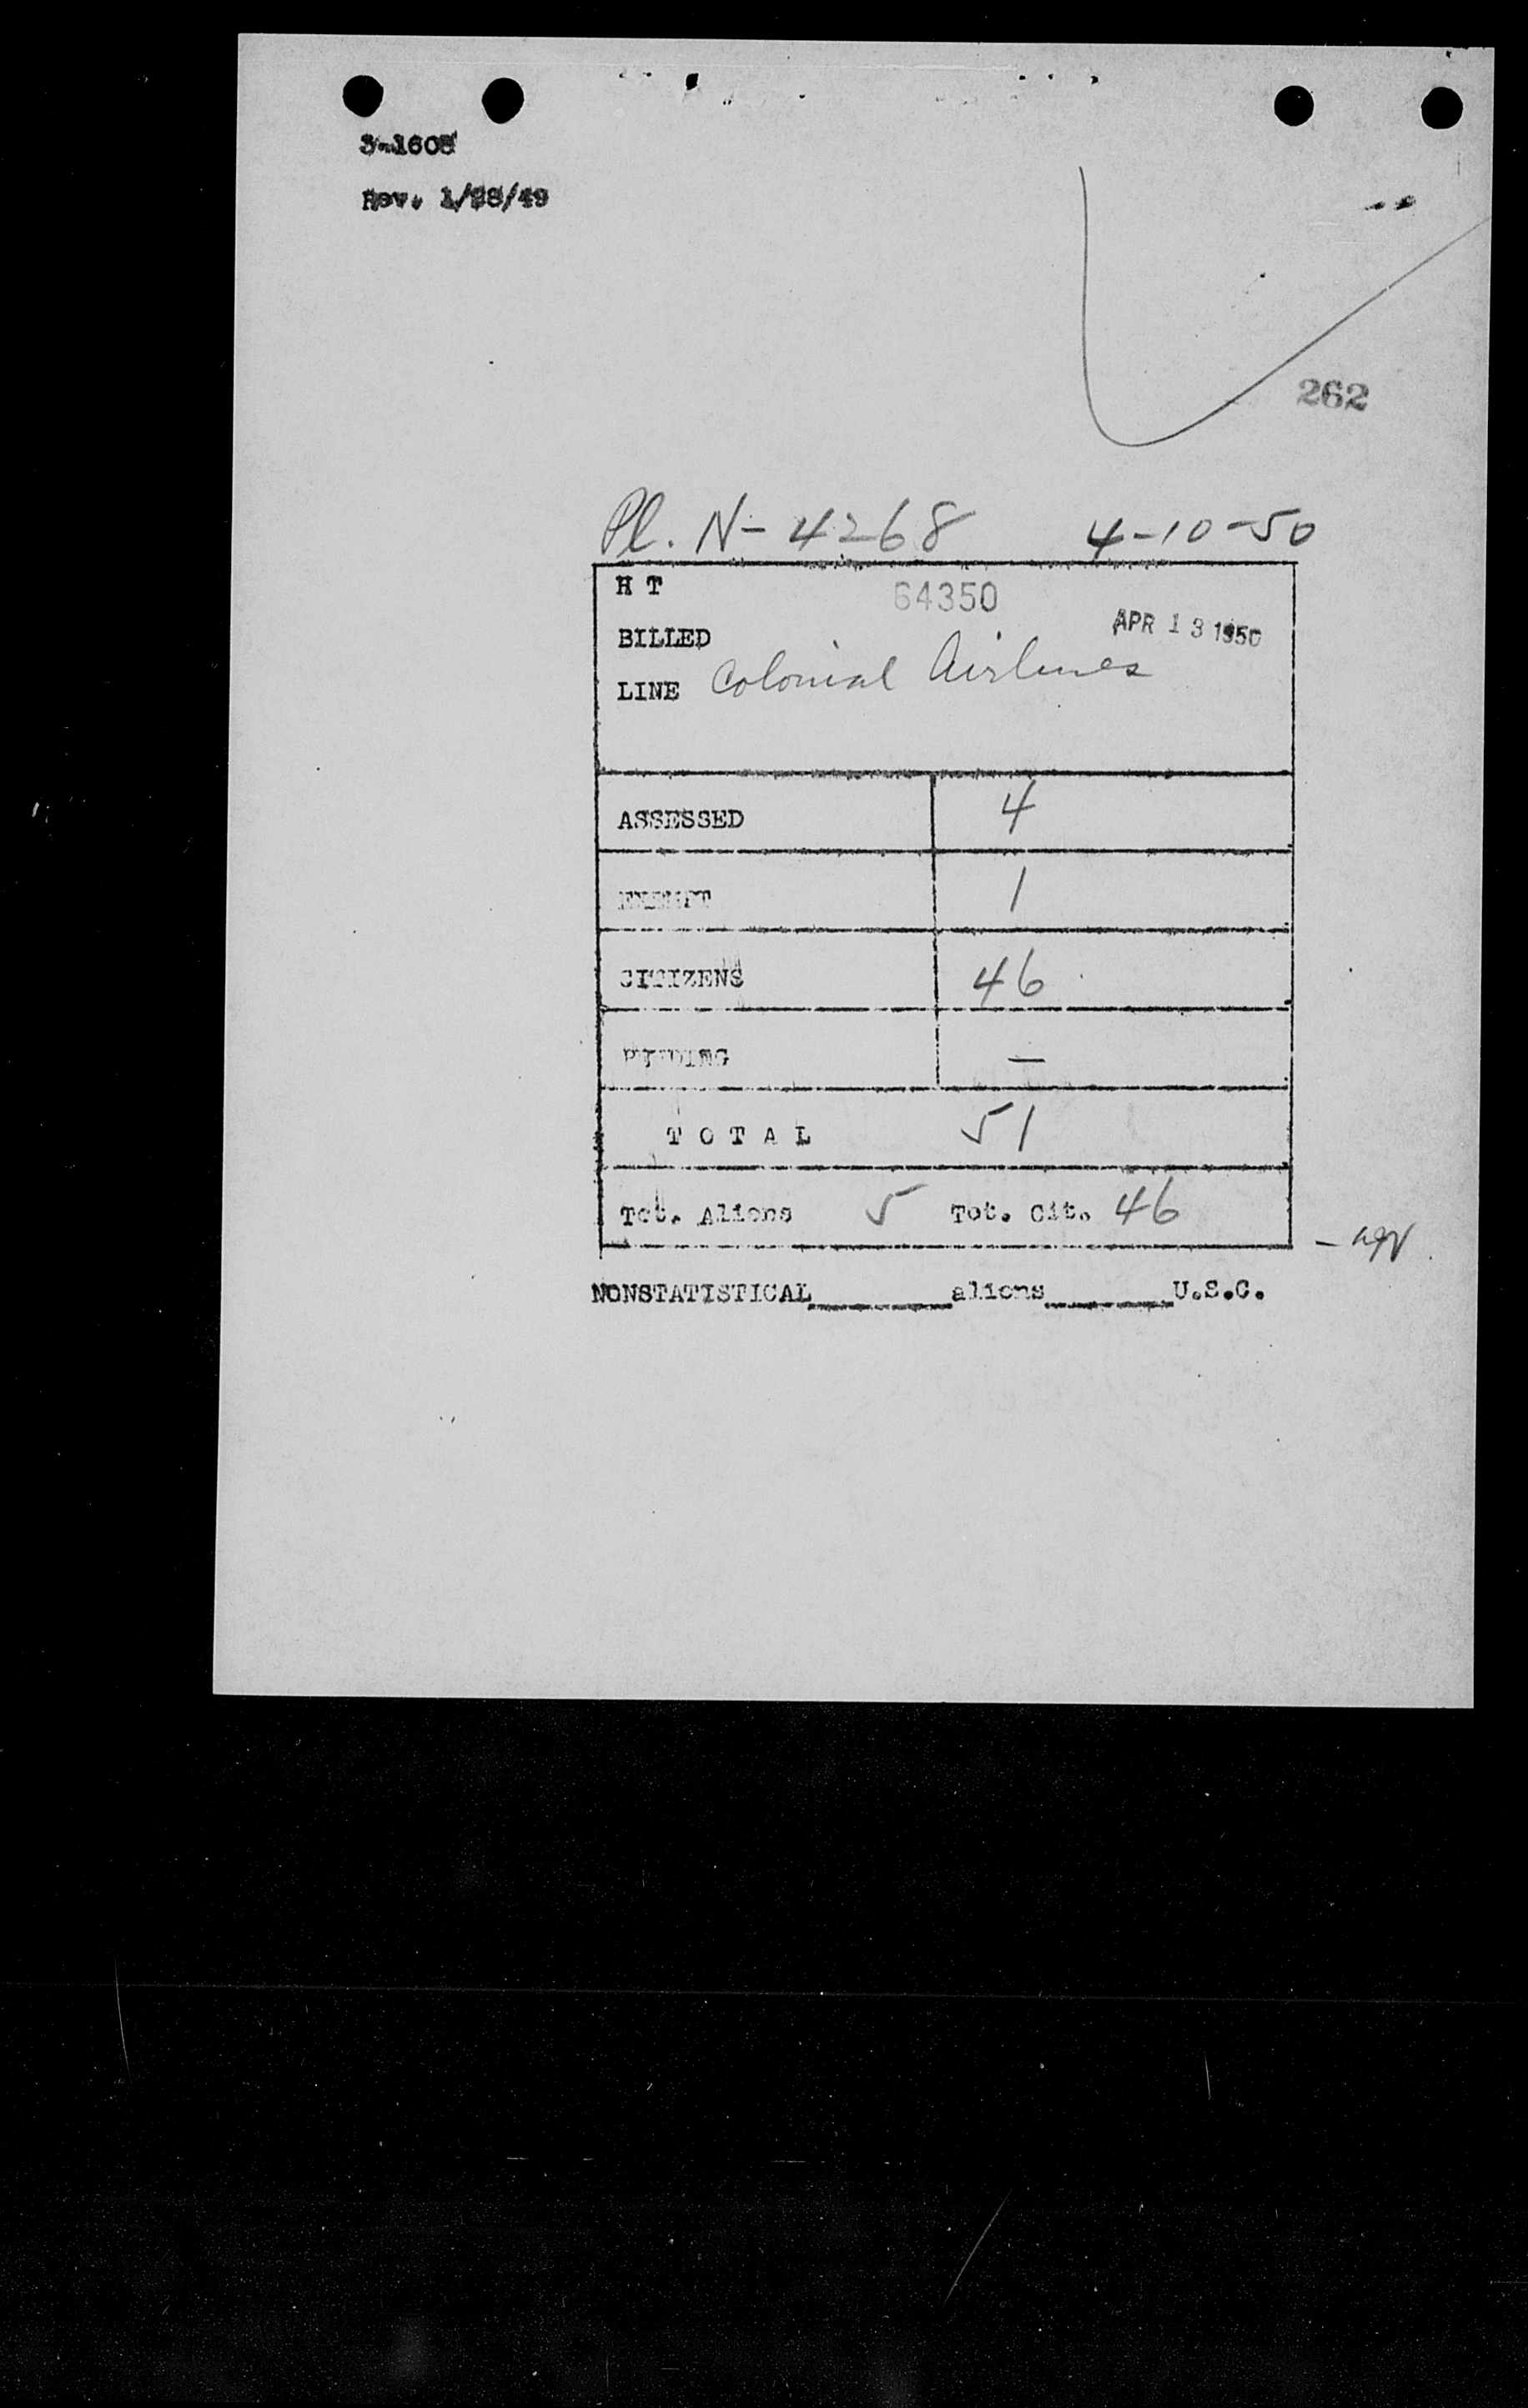 3-1608
Rev. 1/28/49
262
Pl. N- 4268 4-10-50
H T 64350
BILLED APR 13 1950
LINE Colonial Airlines
ASSESSED 4
EXEMPT 1
CITIZENS 46
PENDING —
T O T A L 51
Tot. Aliens 5 Tot. Cit. 46
NONSTATISTICAL________aliens________U.S.C.